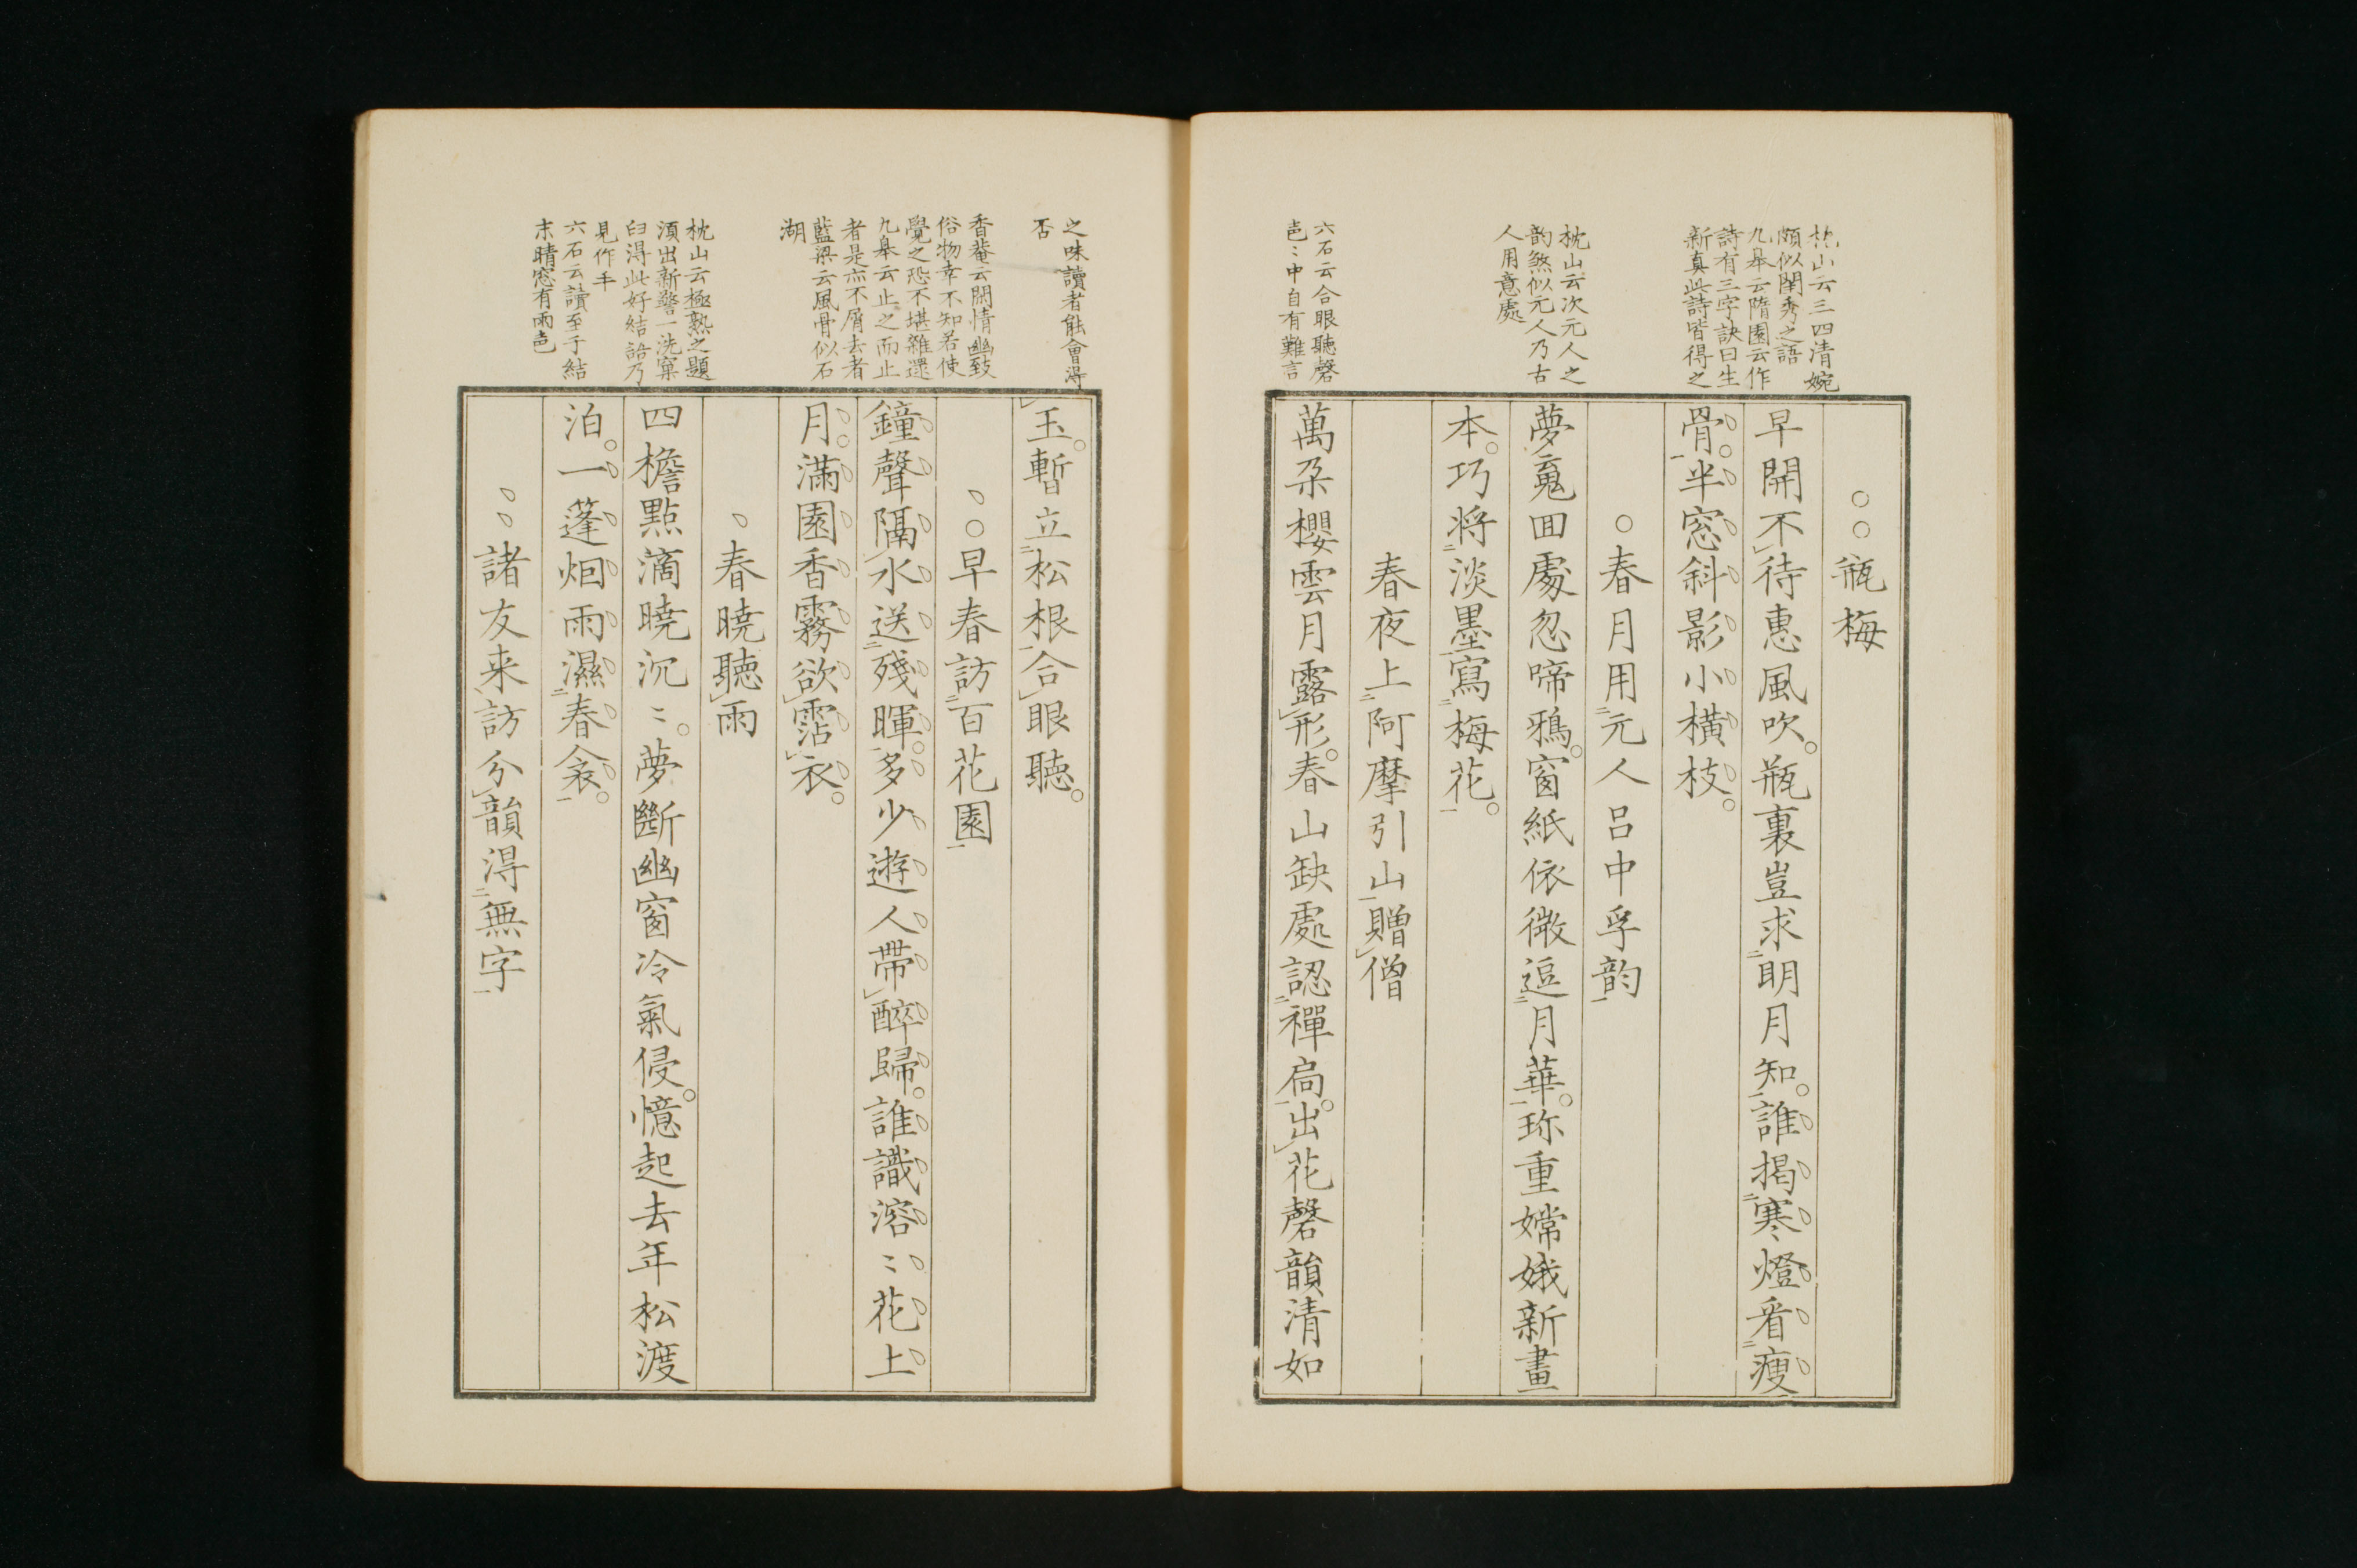 枕山云三四清婉
頗似閨秀之語
九皋云隋園云作
詩有三字訣曰生
新真此詩皆得之
枕山云次元人之
韵煞似元人乃古
人用意處
六石云合眼聽磬
邑〻中自有難言
○○瓶梅
早開不待惠風吹。瓶裏豈求明月知。誰掲寒燈看瘦
骨。半窓斜影小横枝。
○春月用元人呂中孚韵
夢䰟囬處忽啼鴉。窗紙依微逗月華。珎重嫦娥新畫
本。巧将淡墨寫梅花。
春夜上阿摩引山贈僧
萬朶櫻雲月露形。春山缺處認禪扃。出花磬韻清如
之味讀者能會淂
否
香菴云閑情幽致
俗物幸不知若使
覺之恐不堪雜遝
九皋云止之而止
者是亦不屑去者
藍梁云風骨似石
湖
枕山云極熟之題
湏出新警一洗窠
臼淂此好結語乃
見作手
六石云讀至于結
末晴窓有雨邑
玉。暫立松根合眼聽。
丶○早春訪百花園
鐘聲隔水送殘暉。多少遊人帶醉歸。誰識溶〻花上
月。滿園香霧欲霑衣。
丶春曉聽雨
四檐點滴曉沉〻。夢斷幽窗冷氣侵。憶起去年松渡
泊。一蓬烟雨濕春衾。
丶丶諸友来訪分韻淂無字